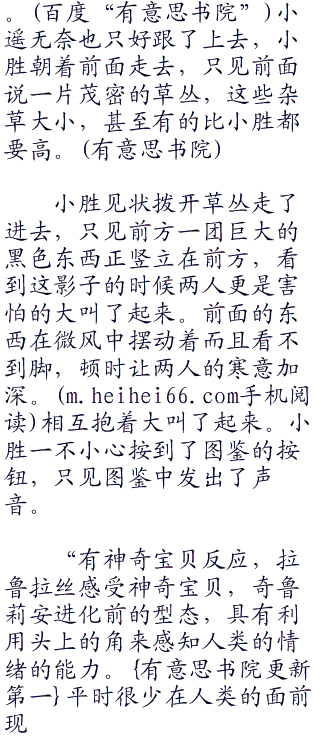 。(百度“有意思书院”)小
遥无奈也只好跟了上去，小
胜朝着前面走去，只见前面
说一片茂密的草丛，这些杂
草大小，甚至有的比小胜都
要高。(有意思书院)
小胜见状拨开草丛走了
进去，只见前方一团巨大的
黑色东西正竖立在前方，看
到这影子的时候两人更是害
怕的大叫了起来。前面的东
西在微风中摆动着而且看不
到脚，顿时让两人的寒意加
深。(m.heihei66.com手机阅
读)相互抱着大叫了起来。小
胜一不小心按到了图鉴的按
钮，只见图鉴中发出了声
音。
“有神奇宝贝反应，拉
鲁拉丝感受神奇宝贝，奇鲁
莉安进化前的型态，具有利
用头上的角来感知人类的情
绪的能力。{有意思书院更新
第一}平时很少在人类的面前
现